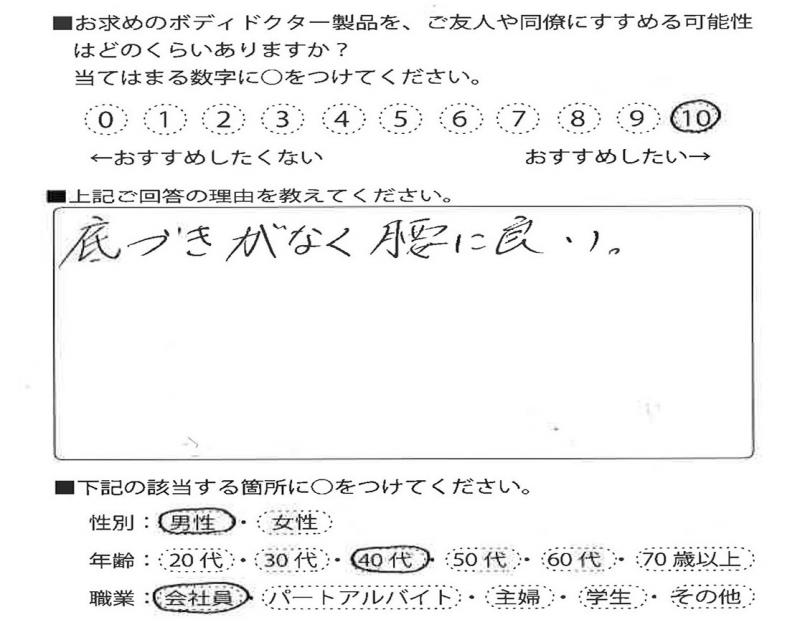 ■お求めのボディドクター製品を、ご友人や同僚にすすめる可能性
はどのくらいありますか?
当てはまる数字に○をつけてください。
0 1 2 3 4 5 6 7 8 9 10
←おすすめしたくない おすすめしたい→
■上記ご回答の理由を教えてください。
底づきがなく腰に良い。
■下記の該当する箇所に○をつけてください。
性別:男性・女性
年齢:20代・30代・40代・50代・60代・70歳以上
職業:会社員・パートアルバイト・主婦・学生・その他